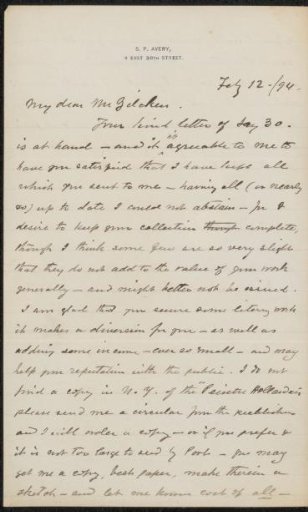 S. P. AVERY,
4 EAST 38TH STREET.
Feby 12 - /94 -
My dear Mr Zilcken.
Your kind letter of Jay 30.
is at hand - and it is agreeable to me to
have you satisfied that I have kept all
which you sent to me - having all (or nearly
so) up to date I could not abstain - for I
desire to keep your collection complete,
though I think some few are so very slight
that they do not add to the value of your work
generally - and might better not be issued.
I am glad that you secure some literary work
it makes a diversion for you - as well as
adding some income - ever so small - and may
help your reputation with the public. I do not
find a copy in N.Y. of the "Peintres Hollandais
please send me a circular from the publishers
and I will order a copy - or if you prefer &
it is not too large to send by Post - you may
get me a copy, best paper, make therein a
sketch - and let me know cost of all -